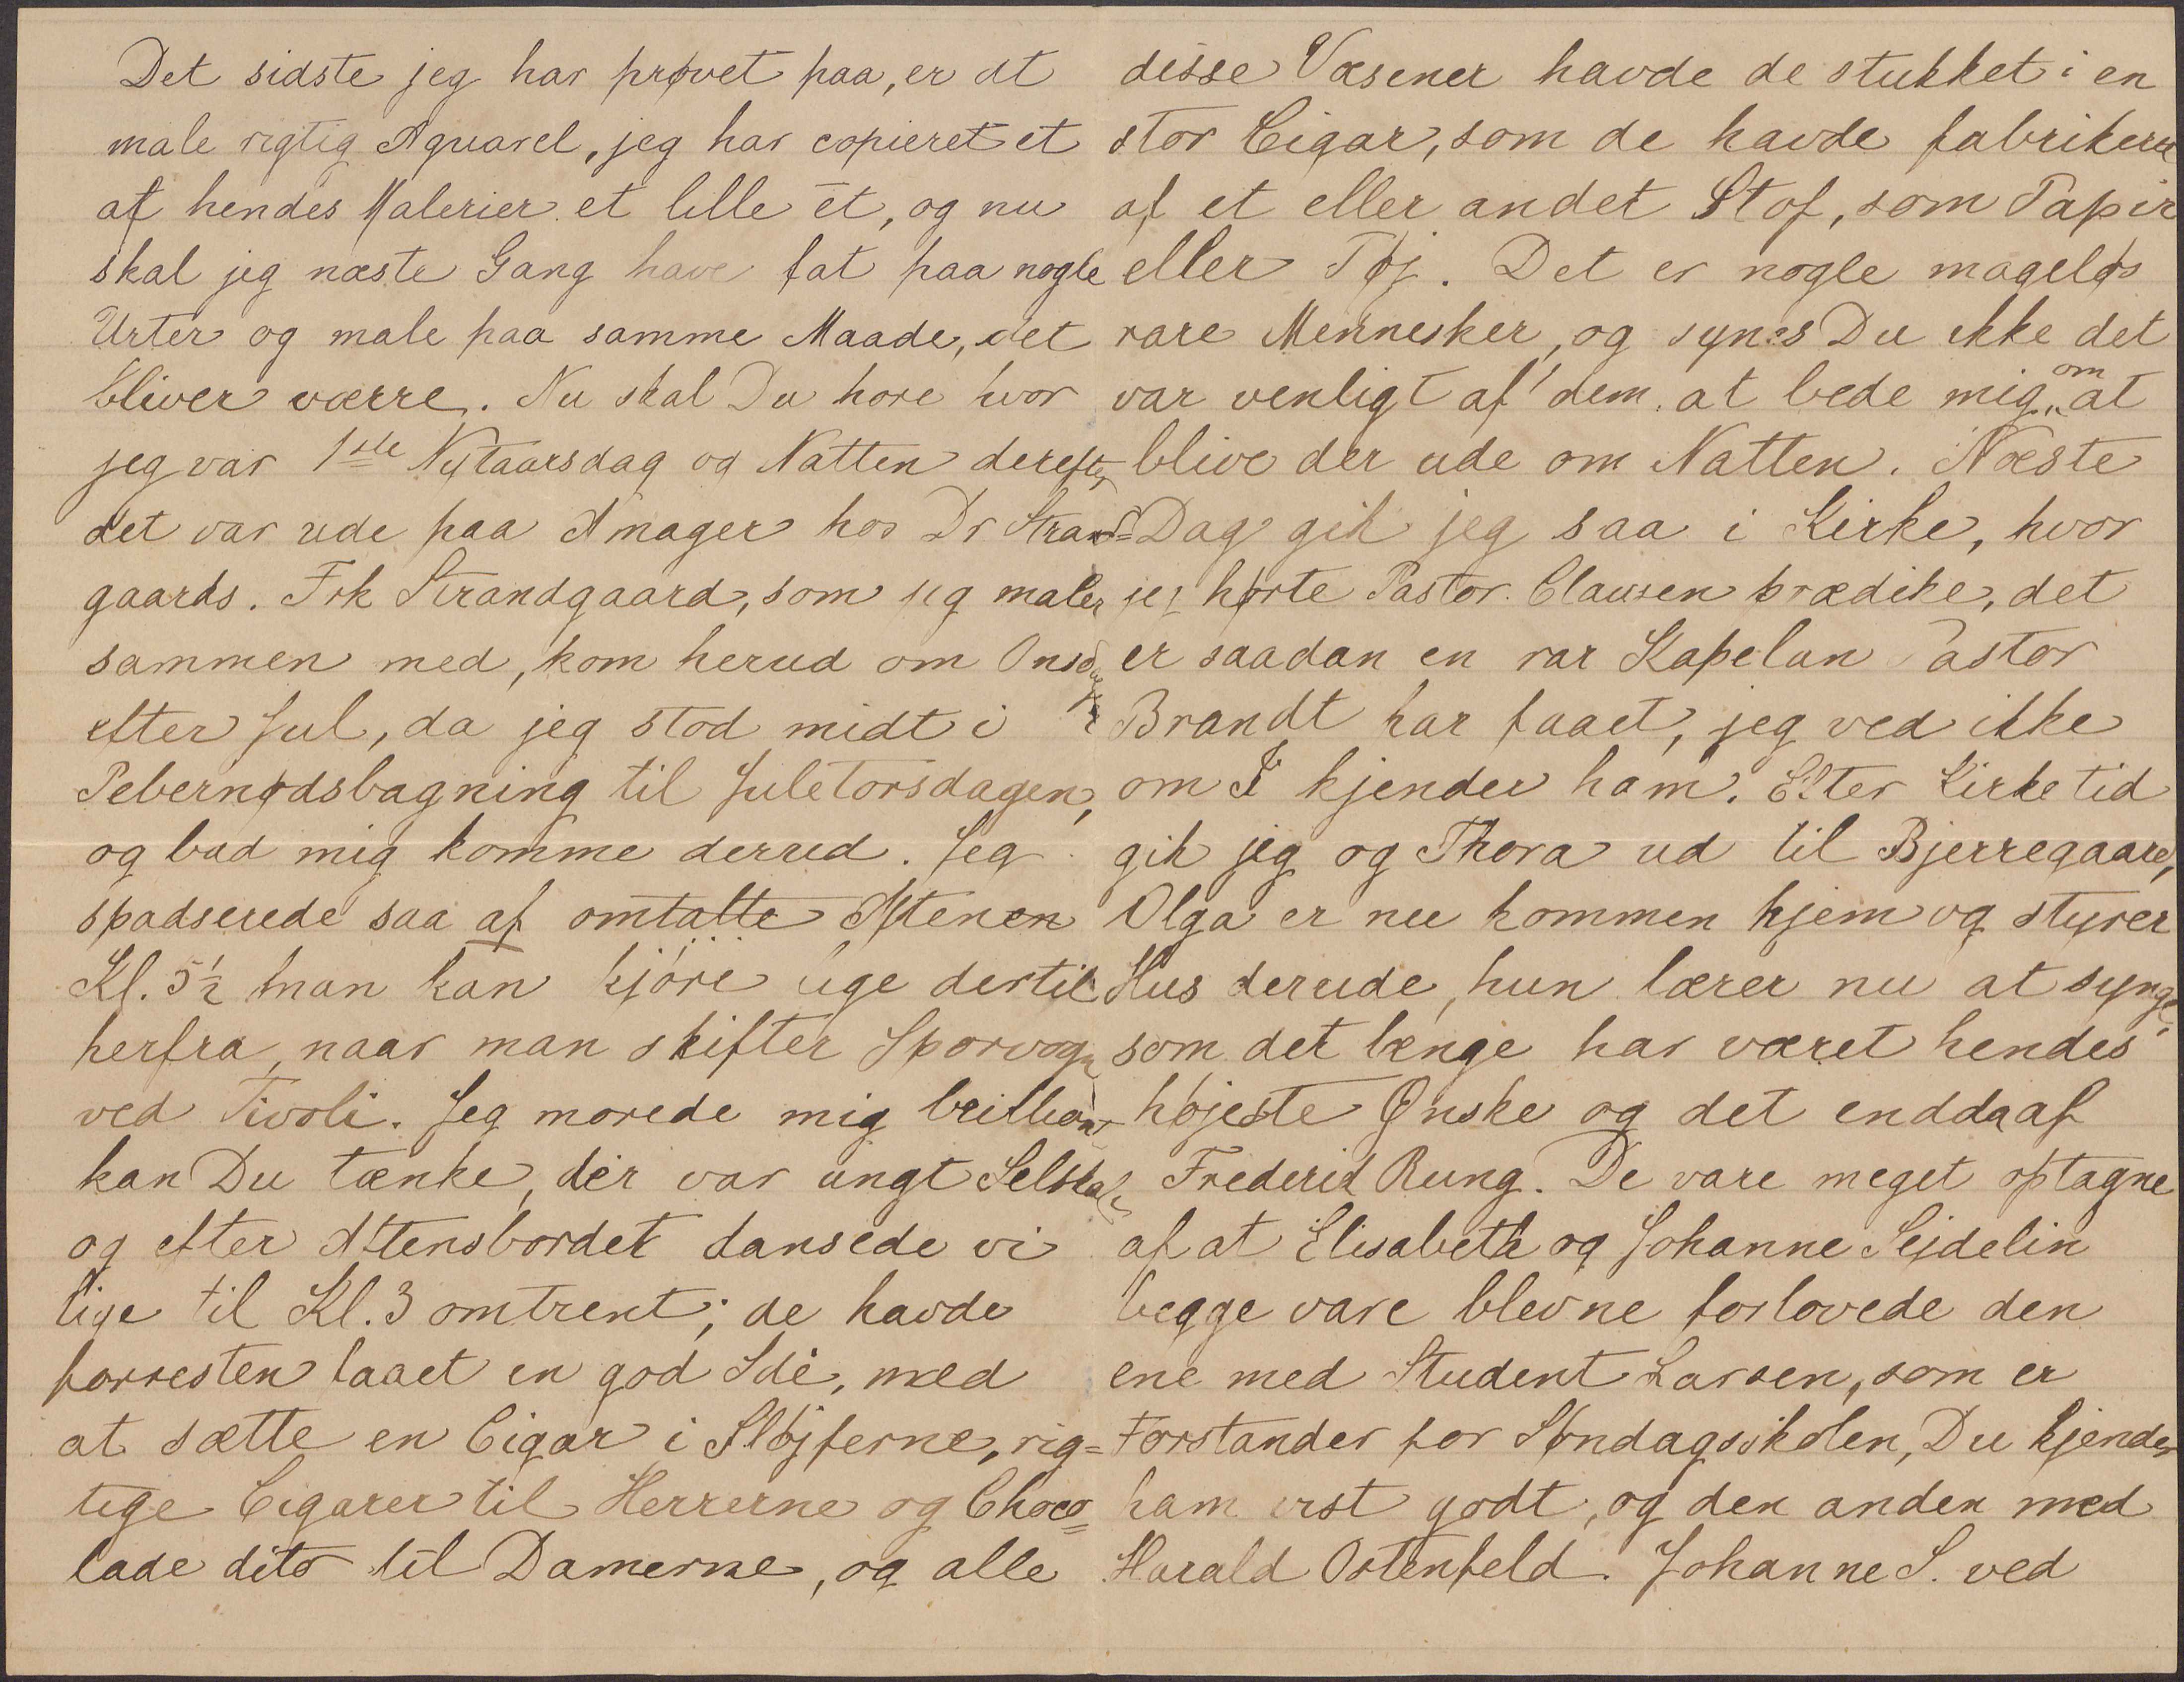 Det sidste jeg har prøvet paa, er at
male rigtig Aquarel, jeg har copieret et
af hendes Malerier et lille ét, og nu
skal jeg næste Gang have fat paa nogle
Urter og male paa samme Maade, det
bliver værre. Nu skal Du høre hvor
jeg var 1ste Nytaarsdag og Natten derefter,
det var ude paa Amager hos Dr Strand=
gaards. Frk Strandgaard, som jeg maler
sammen med, kom herud om Onsdagen
efter Jul, da jeg stod midt i
Pebernødsbagning til Juletorsdagen,
og bad mig komme derud. Jeg
spadserede saa af omtalte Aftenen
Kl. 5½ man kan kjøre lige dertil
herfra, naar man skifter Sporvogn
ved Tivoli. Jeg morede mig brillant
kan Du tænke, der var ungt Selskab
og efter Aftensbordet dansede vi
lige til Kl. 3 omtrent; de havde
forresten faaet en god Idé, med
at sætte en Cigar i Sløjferne, rig=
tige Cigarer til Herrerne og Choco=
lade dito til Damerne, og alle
disse Væsener havde de stukket i en
stor Cigar, som de havde fabrikeret
af et eller andet Stof, som Papir
eller Tøj. Det er nogle mageløs
rare Mennesker, og synes Du ikke det
var venligt af dem at bede mig om at
blive der ude om Natten. Næste
Dag gik jeg saa i Kirke, hvor
jeg hørte Pastor Clausen prædike, det
er saadan en rar Kapelan Pastor
Brandt har faaet, jeg ved ikke
om I kjender ham. Efter Kirketid
gik jeg og Thora ud til Bjerregaard,
Olga er nu kommen hjem og styrer
Hus derude, hun lærer nu at synge,
som det længe har været hendes
højeste Ønske og det endda af
Frederik Rung. De vare meget optagne
af at Elisabeth og Johanne Sejdelin
begge vare blevne forlovede den
ene med Student Larsen, som er
Forstander for Søndagsskolen, Du kjender
ham vist godt, og den anden med
Harald Ostenfeld. Johanne S. ved